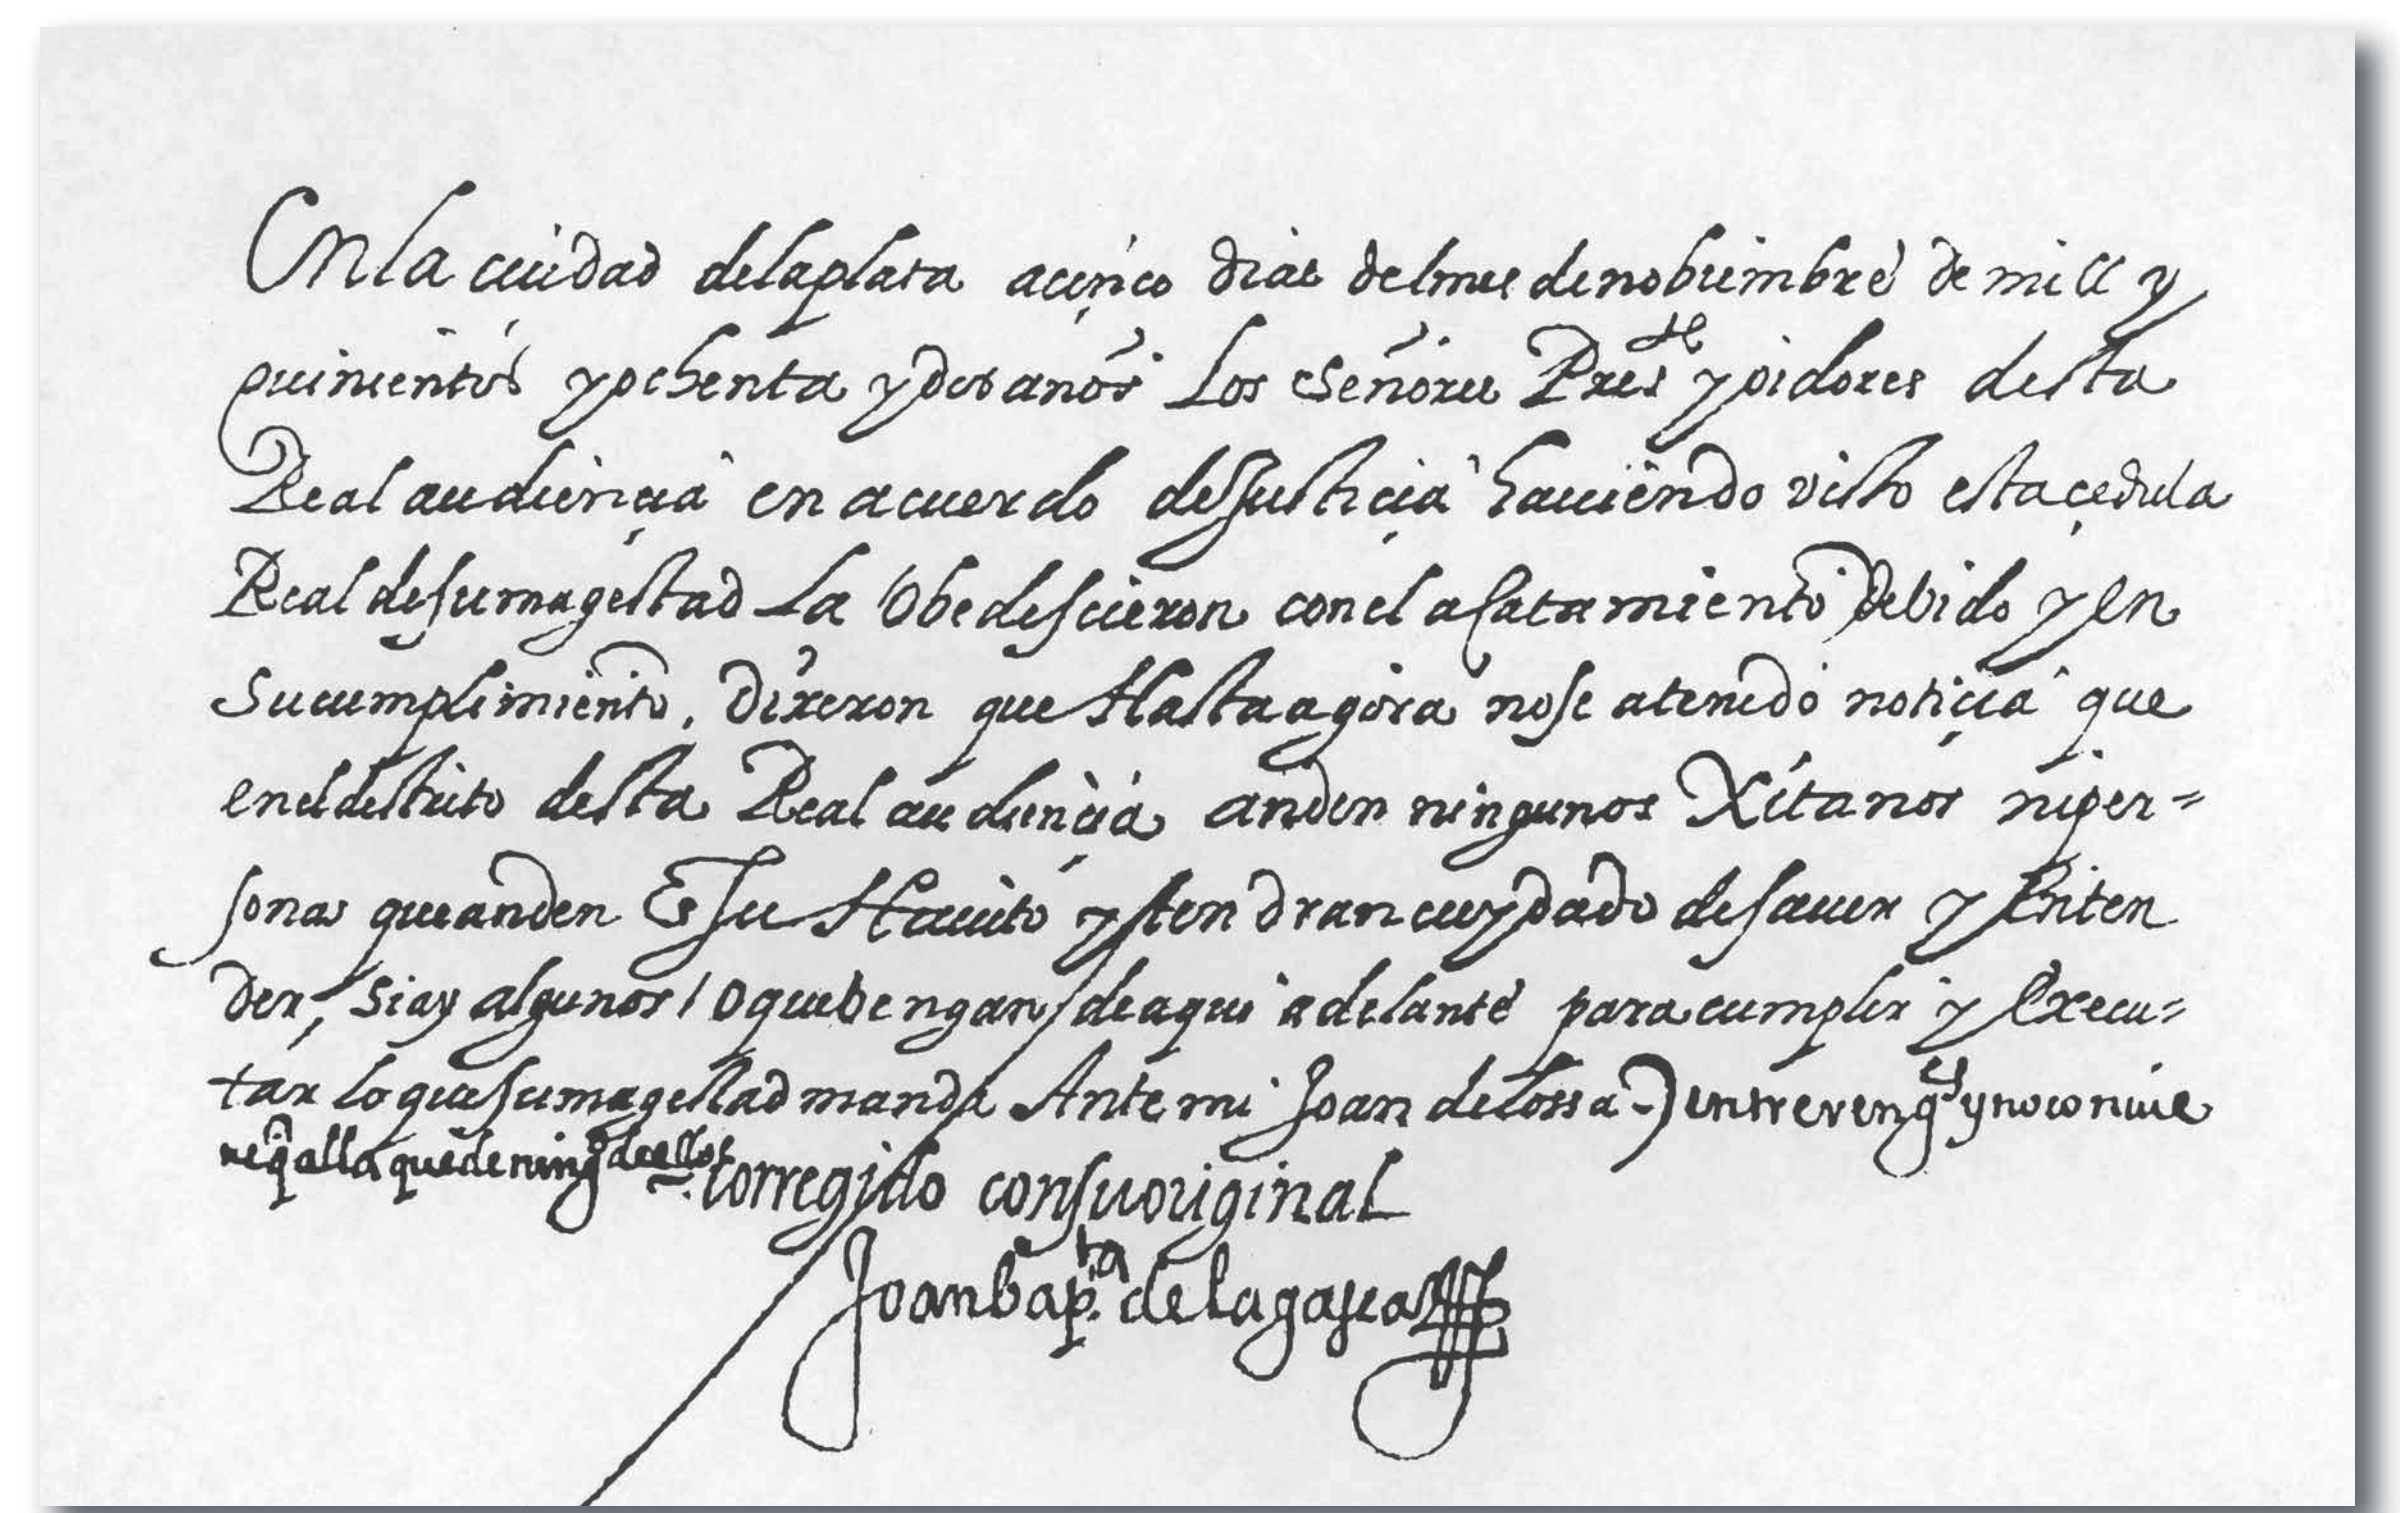 En la ciudad de la plata a cinco dias del mes de nobiembre de mill y
quinientos y ochenta y dos años los señores Pres.te y oidores desta
Real audiencia en acuerdo de Justicia hauiendo visto esta cedula
Real de su magestad la obedescieron con el acatamiento debido y en
su cumplimiento, dixeron que Hasta agora no se a tenido noticia que
en el destrito desta Real audiencia anden ningunos Xitanos ni per=
sonas que anden E su Hauito y tendran cuydado de sauer y Enten
der, si ay algunos / o que bengan de aqui adelante para cumplir y Execu=
tar lo que su magestad manda Ante mi Joan de lossa -) entre reng.es y no conuie
ne q alla quede ning.o de ellos corregido con su original
Joan bap.ta de la gasca